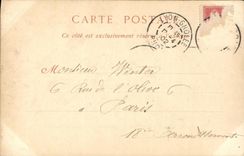 CARTE POSTALE
Ce côté est exclusivement réservé
LYON-GROLÉE
Monsieur Winter
6 Rue de l'olive 6
à Paris
18e Arrondissement